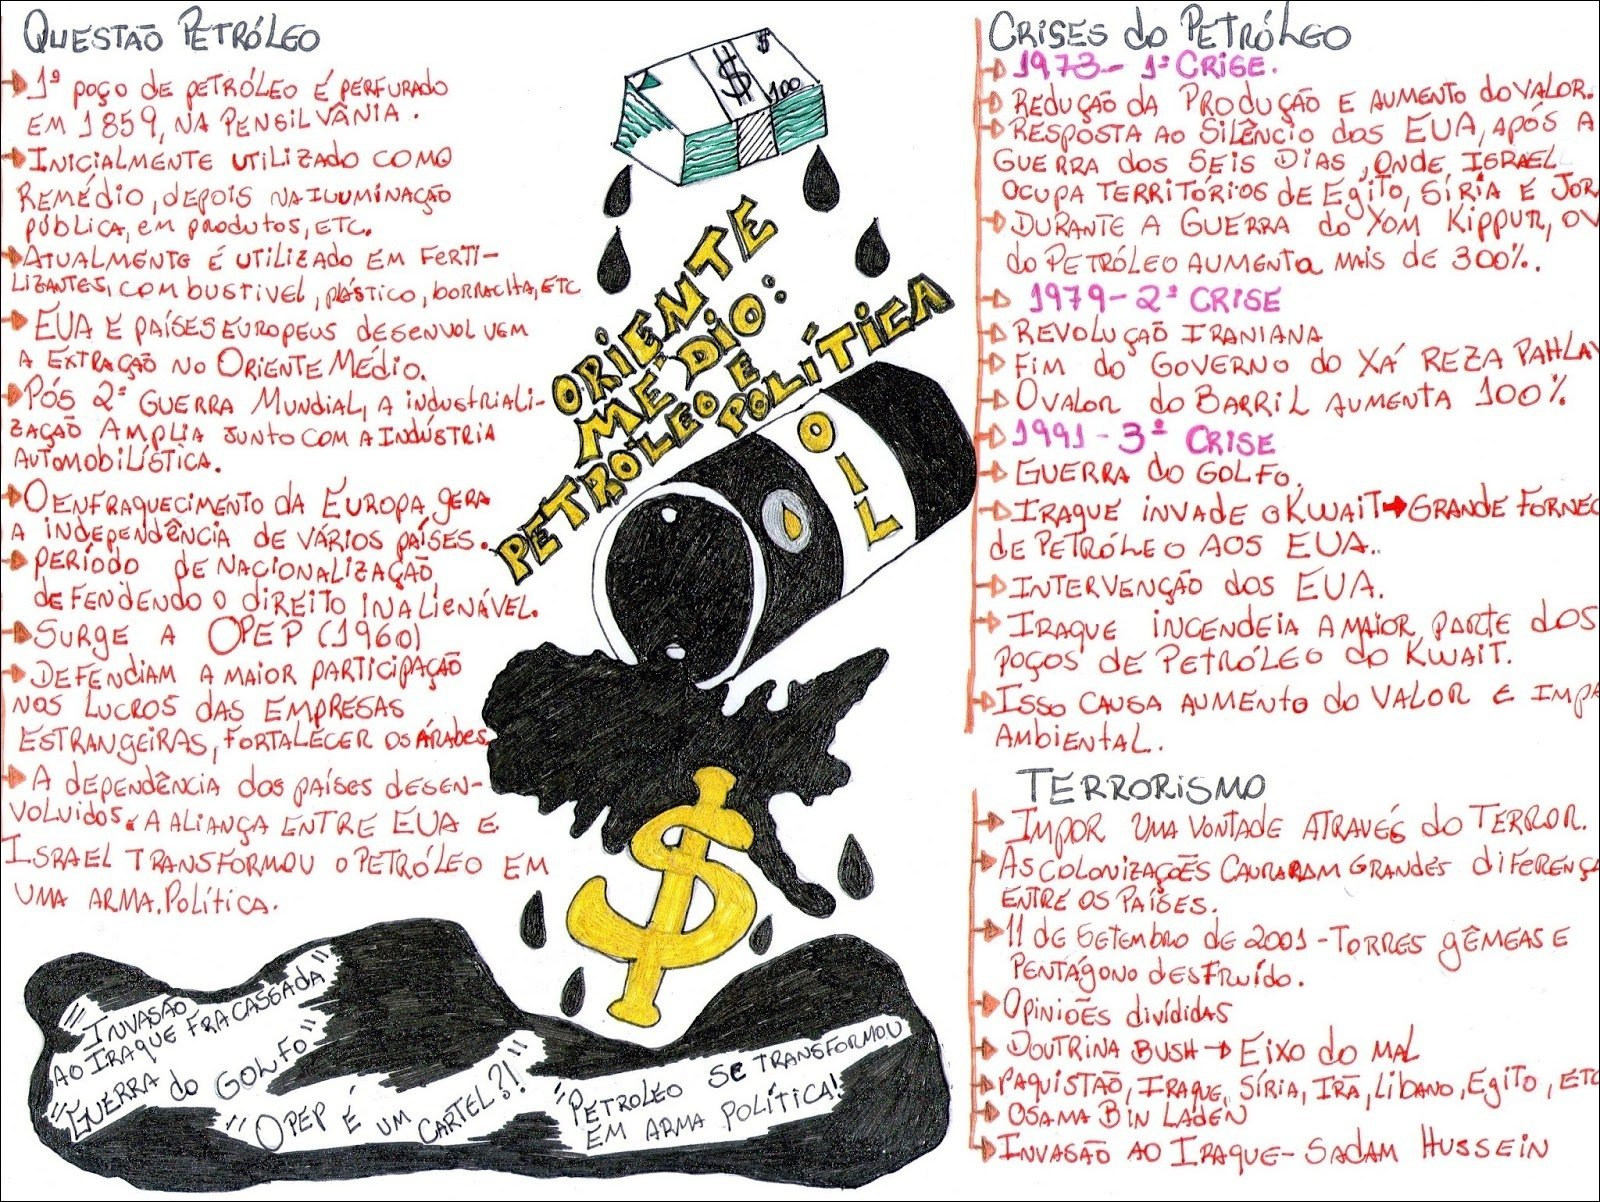 QUESTÃO PETRÓLEO
1º POÇO DE PETRÓLEO É PERFURADO
EM 1859, NA PENSILVÂNIA.
INICIALMENTE UTILIZADO COMO
REMÉDIO, DEPOIS NA ILUMINAÇÃO
PÚBLICA, EM PRODUTOS, ETC.
ATUALMENTE É UTILIZADO EM FERTI-
LIZANTES, COMBUSTIVEL, PLÁSTICO, BORRACHA, ETC
EUA E PAÍSES EUROPEUS DESENVOLVEM
A EXTRAÇÃO NO ORIENTE MÉDIO.
PÓS 2ª GUERRA MUNDIAL, A INDUSTRIALI-
ZAÇÃO AMPLIA JUNTO COM A INDÚSTRIA
AUTOMOBILÍSTICA.
O ENFRAQUECIMENTO DA EUROPA GERA
A INDEPENDÊNCIA DE VÁRIOS PAÍSES.
PERÍODO DE NACIONALIZAÇÃO
DEFENDENDO O DIREITO INALIENÁVEL.
SURGE A OPEP (1960)
DEFENDIAM A MAIOR PARTICIPAÇÃO
NOS LUCROS DAS EMPRESAS
ESTRANGEIRAS, FORTALECER OS ÁRABES.
A DEPENDÊNCIA DOS PAÍSES DESEN-
VOLVIDOS E A ALIANÇA ENTRE EUA E
ISRAEL TRANSFORMOU O PETRÓLEO EM
UMA ARMA POLÍTICA.
$
$
100
ORIENTE
MÉDIO:
PETRÓLEO E
POLÍTICA
OIL
$
"INVASÃO
AO IRAQUE FRACASSADA"
"GUERRA DO GOLFO"
"OPEP É UM CARTEL?!"
"PETROLEO SE TRANSFORMOU
EM ARMA POLÍTICA!
CRISES DO PETRÓLEO
1973 - 1ª CRISE.
REDUÇÃO DA PRODUÇÃO E AUMENTO DO VALOR.
RESPOSTA AO SILÊNCIO DOS EUA, APÓS A
GUERRA DOS SEIS DIAS, ONDE ISRAEL
OCUPA TERRITÓRIOS DE EGITO, SÍRIA E JOR
DURANTE A GUERRA DO YOM KIPPUR, O V
DO PETRÓLEO AUMENTA MAIS DE 300%.
1979 - 2ª CRISE
REVOLUÇÃO IRANIANA
FIM DO GOVERNO DO XÁ REZA PAHLAV
O VALOR DO BARRIL AUMENTA 100%
1991 - 3ª CRISE
GUERRA DO GOLFO.
IRAQUE INVADE O KWAIT → GRANDE FORNEC
DE PETRÓLEO AOS EUA.
INTERVENÇÃO DOS EUA.
IRAQUE INCENDEIA A MAIOR PARTE DOS
POÇOS DE PETRÓLEO DO KWAIT.
ISSO CAUSA AUMENTO DO VALOR E IMPA
AMBIENTAL.
TERRORISMO
IMPOR UMA VONTADE ATRAVÉS DO TERROR.
AS COLONIZAÇÕES CAUSARAM GRANDES DIFERENÇA
ENTRE OS PAÍSES.
11 DE SETEMBRO DE 2001 - TORRES GÊMEAS E
PENTÁGONO DESTRUÍDO.
OPINIÕES DIVÍDIDAS
DOUTRINA BUSH → EIXO DO MAL
PAQUISTÃO, IRAQUE, SÍRIA, IRÃ, LÍBANO, EGITO, ETC
OSAMA BIN LADEN
INVASÃO AO IRAQUE - SADAM HUSSEIN